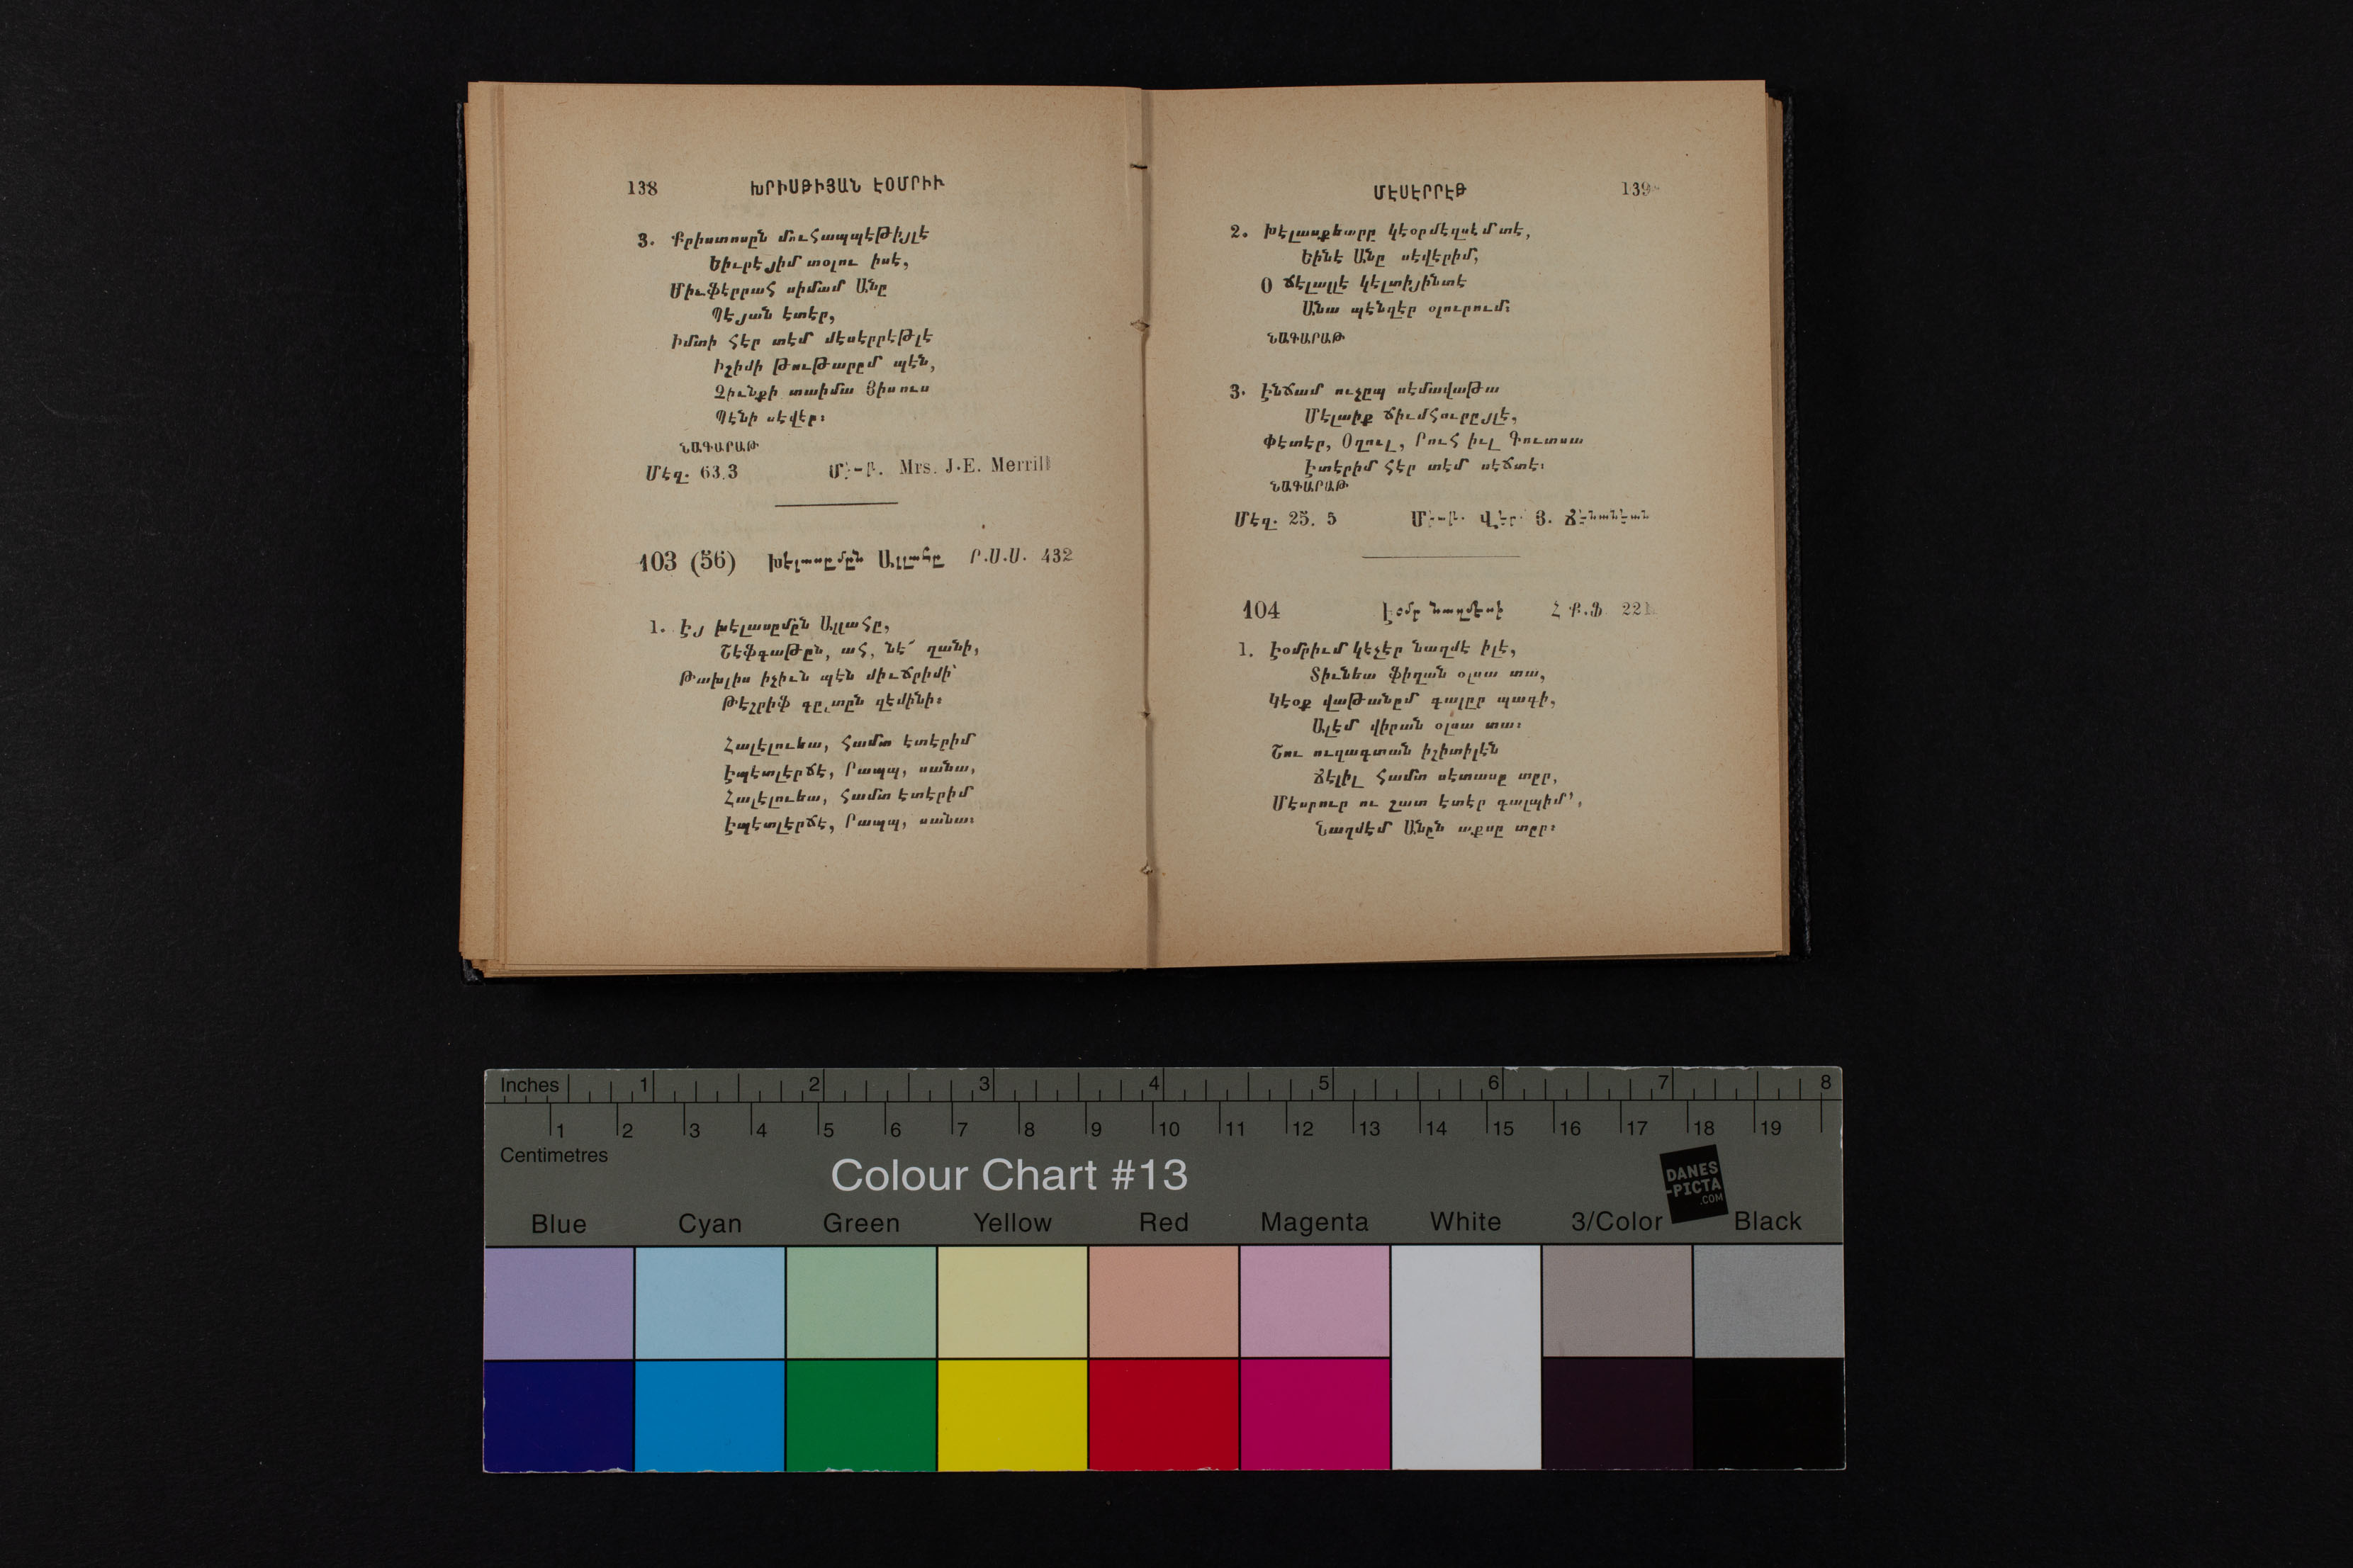 138 ԽՐԻՍԹԻՅԱՆ ԷՕՄՐԻՒ
3. Քրիստոսըն մուհապպէթիյլէ
Եիւրէյիմ տօլու իսէ,
Միւֆէրրահ սիմամ Անը
Պէյան էտէր,
Իմտի հէր տէմ մէսէրրէթլէ
Իչիմի թութարըմ պէն,
Զիւնքի տաիմա Յիսուս
Պէնի սէվէր։
ՆԱԳԱՐԱԹ
Մէզ. 63.3 Mrs. J.E. Merrill
103 (56) Խէլասըմըն Ալլահը Ր.Ս.Ս. 432
1. Էյ խէլասըմըն Ալլահը,
Շէֆգաթըն, ահ, նէ՛ ղանի,
Թախլիս իչիւն պէն միւճրիմի՝
Թէշրիֆ գըլտըն զէմինի։
Հալէլուեա, համտ էտէրիմ
Էպէտլէրճէ, Րապպ, սանա,
Հալէլուեա, համտ էտէրիմ
Էպէտլէրճէ, Րապպ, սանա։
ՄԷՍԷՐՐԷԹ 139
2. Խէլասքեարը կէօրմէզսէմ տէ,
Եինէ Անը սէվէրիմ,
Օ ճէլալլէ կէլտիյինտէ
Անա պէնզէր օլուրում։
ՆԱԳԱՐԱԹ
3. Էնճամ ուչըպ սէմավաթա
Մէլաիք ճիւմհուրըյլէ,
Փէտէր, Օղուլ, Րուհ իւլ Գուտսա
Էտէրիմ հէր տէմ սէճտէ։
ՆԱԳԱՐԱԹ
Մէզ. 25. 5 Վեր. Յ. Ճէնանեան
104 Էօմր նաղմէսի Հ Ք.Ֆ. 221
1. Էօմրիւմ կէչէր նաղմէ իլէ,
Տիւնեա ֆիղան օլսա տա,
Կէօք վաթանըմ գալըր պագի,
Ալէմ վիրան օլսա տա։
Շու ուզագտան իշիտիլէն
Ճէլիլ համտ սէտասը տըր,
Մէսրուր ու շատ էտէր գալպիմ՚,
Նաղմէմ Անըն աքսը տըր։
Inches 1 2 3 4 5 6 7 8
1 2 3 4 5 6 7 8 9 10 11 12 13 14 15 16 17 18 19
Centimetres
Colour Chart #13
DANES
-PICTA
.COM
Blue Cyan Green Yellow Red Magenta White 3/Color Black